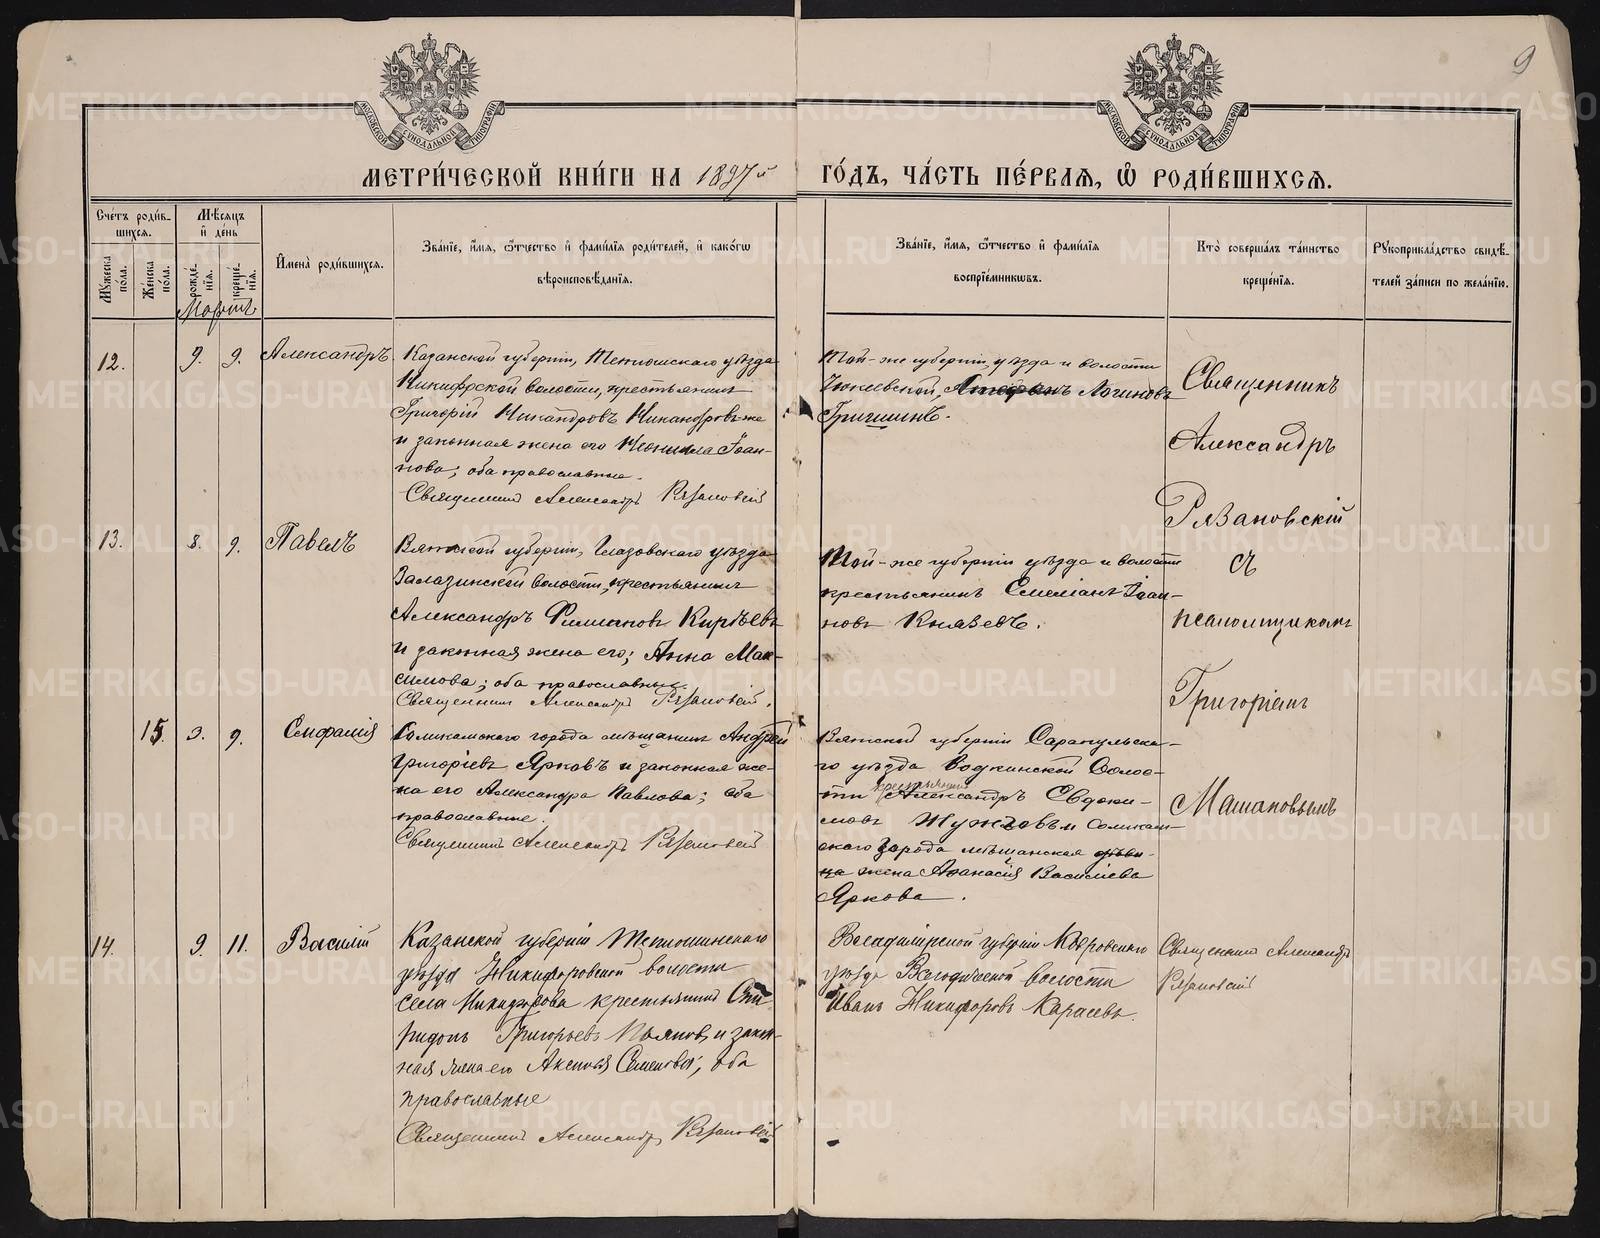 9
МЕТРИ́ЧЕСКОЙ КНИ́ГИ НА 1897й ГО́ДЪ, ЧА́СТЬ ПЕ́РВАЯ, Ѡ҆ РОДИ́ВШИХСЯ.
Сче́тъ роди́в-
шихся.
Му́жеска
по́ла.
Же́нска
по́ла.
Мѣ́сяцъ
и҆ де́нь
рожде́-
нїя.
креще́-
нїя.
И҆мена̀ роди́вшихся.
Зва́нїе, и҆́мя, ѻ҆́тчество и҆ фами́лїя роди́телей, и҆ како́гѡ
вѣроисповѣ́данїя.
Зва́нїе, и҆́мя, ѻ҆́тчество и҆ фами́лїя
воспрїе́мникѡвъ.
Кто̀ соверша́лъ та́инство
креще́нїя.
Рꙋкоприкла́дство свидѣ́-
телей за́писи по жела́нїю.
Мартъ
12.
9. 9.
Александръ
Казанской губернiи, Тетюшскаго уѣзда
волости, крестьянинъ
Григорiй Никандровъ Никандровъ же
и законная жена его Неонилла Iоан-
нова; оба православные.
Священникъ Александръ Рязановскiй
Той-же губернiи, уѣзда и волости
Логиновъ
Гришинъ.
Священникъ
Александръ
Рязановскiй
съ
псаломщикомъ
Григорiемъ
Машановымъ
13.
8. 9.
Павелъ
Вятской губернiи, Глазовскаго уѣзда
Залазинской волости, крестьянинъ
Александръ Филиповъ Кирѣевъ
и законная жена его; Анна Мак-
симова; оба православные.
Священникъ Александръ Рязановскiй.
Той-же губернiи уѣзда и волости
крестьянинъ Симеонъ Iоан-
новъ Князевъ.
15.
9. 9.
Соликамскаго города мѣщанинъ Андрей
Григорiевъ Ярковъ и законная же-
на его Александра Павлова; оба
православные.
Священникъ Александръ Рязановскiй
Вятской губернiи Сарапульска-
го уѣзда Воткинской Волос-
ти крестьянинъ Александръ Евдоки-
мовъ и Соликам-
скаго города мѣщанская
жена Афанасiя Васильева
Яркова.
14.
9. 11.
Василiй
Казанской губернiи Тетюшинскаго
уѣзда Никифоровской волости
села Никифорова крестьянинъ Спи-
ридонъ Григорьевъ Пьяновъ и закон-
ная жена его Аксинья Семенова, оба
православные
Священникъ Александръ Рязановскiй
Владимiрской губернiи Ковровскаго
уѣзда волости
Иванъ Никифоровъ Карасевъ.
Священникъ Александръ
Рязановскiй
METRIKI.GASO-URAL.RU